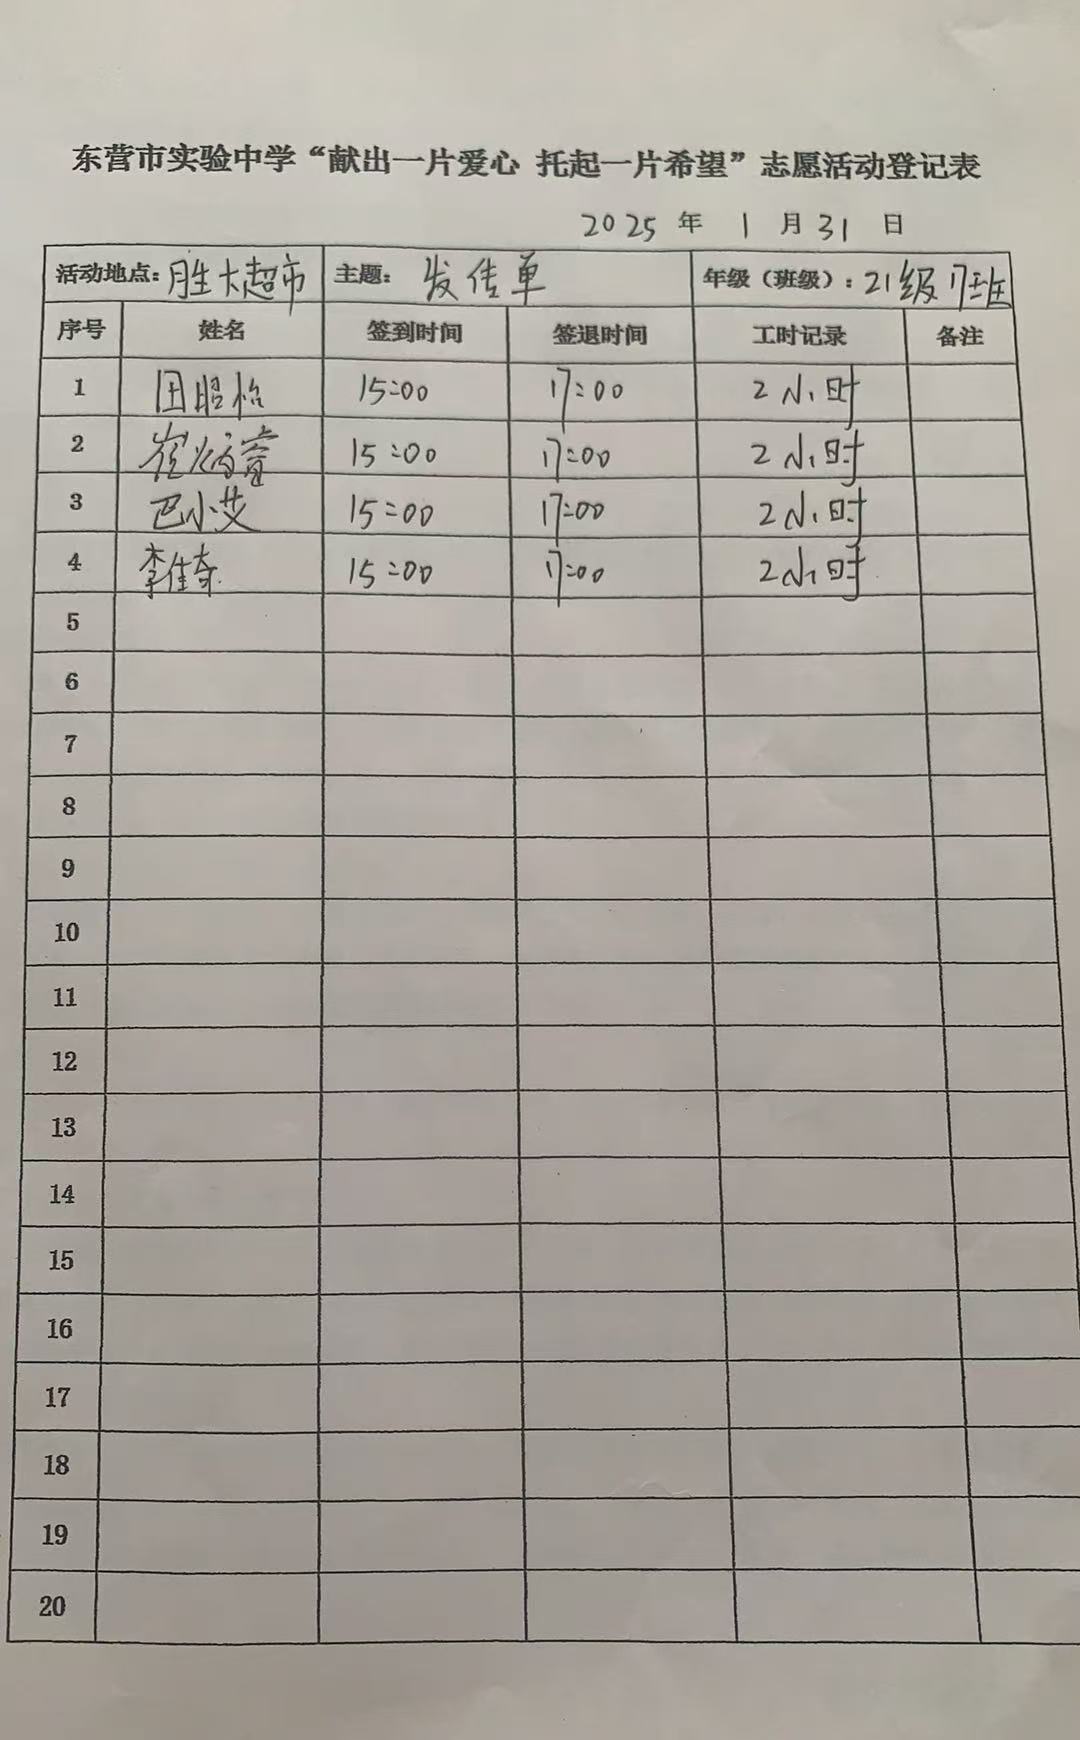 东营市实验中学“献出一片爱心 托起一片希望”志愿活动登记表
2025 年 1 月 31 日
活动地点：胜大超市 主题： 发传单 年级（班级）：21级17班
序号 姓名 签到时间 签退时间 工时记录 备注
1 田昭怡 15:00 17:00 2小时
2 崔炳萱 15:00 17:00 2小时
3 巴小艾 15:00 17:00 2小时
4 李佳奇 15:00 17:00 2小时
5
6
7
8
9
10
11
12
13
14
15
16
17
18
19
20